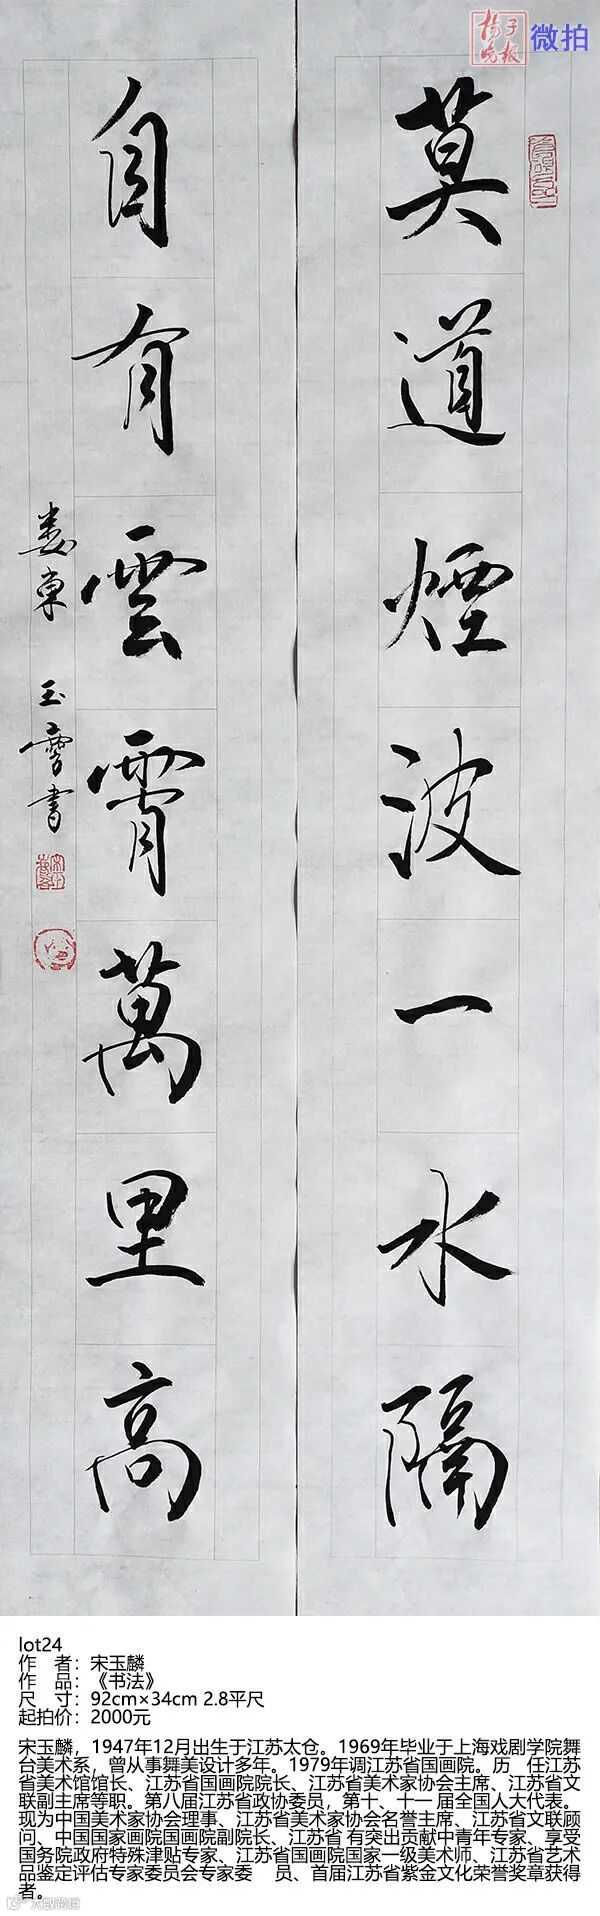 扬子晚报 微拍
莫道煙波一水隔
自有雲霄萬里高
娄東 玉
書
lot24
作 者：宋玉麟
作 品：《书法》
尺 寸：92cm×34cm 2.8平尺
起拍价：2000元
宋玉麟，1947年12月出生于江苏太仓。1969年毕业于上海戏剧学院舞
台美术系，曾从事舞美设计多年。1979年调江苏省国画院。历 任江苏
省美术馆馆长、江苏省国画院院长、江苏省美术家协会主席、江苏省文
联副主席等职。第八届江苏省政协委员，第十、十一 届全国人大代表。
现为中国美术家协会理事、江苏省美术家协会名誉主席、江苏省文联顾
问、中国国家画院国画院副院长、江苏省 有突出贡献中青年专家、享受
国务院政府特殊津贴专家、江苏省国画院国家一级美术师、江苏省艺术
品鉴定评估专家委员会专家委 员、首届江苏省紫金文化荣誉奖章获得
者。